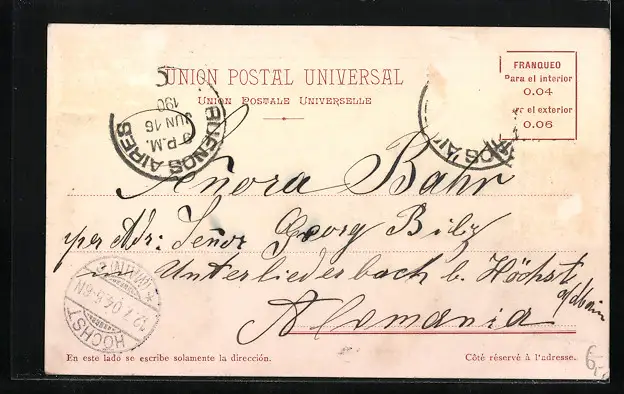 UNION POSTAL UNIVERSAL
UNION POSTALE UNIVERSELLE
FRANQUEO
Para el interior
0.04
el exterior
0.06
BUENOS AIRES
JUN 16
190
P.M.
Señora Bahr
per Adr: Señor Georg Bilz
in Unterliederbach b. Höchst
a/Main
Alemania
HÖCHST
(MAIN)
12.7.04.5-6N
En este lado se escribe solamente la dirección.
Côté réservé à l'adresse.
6,-